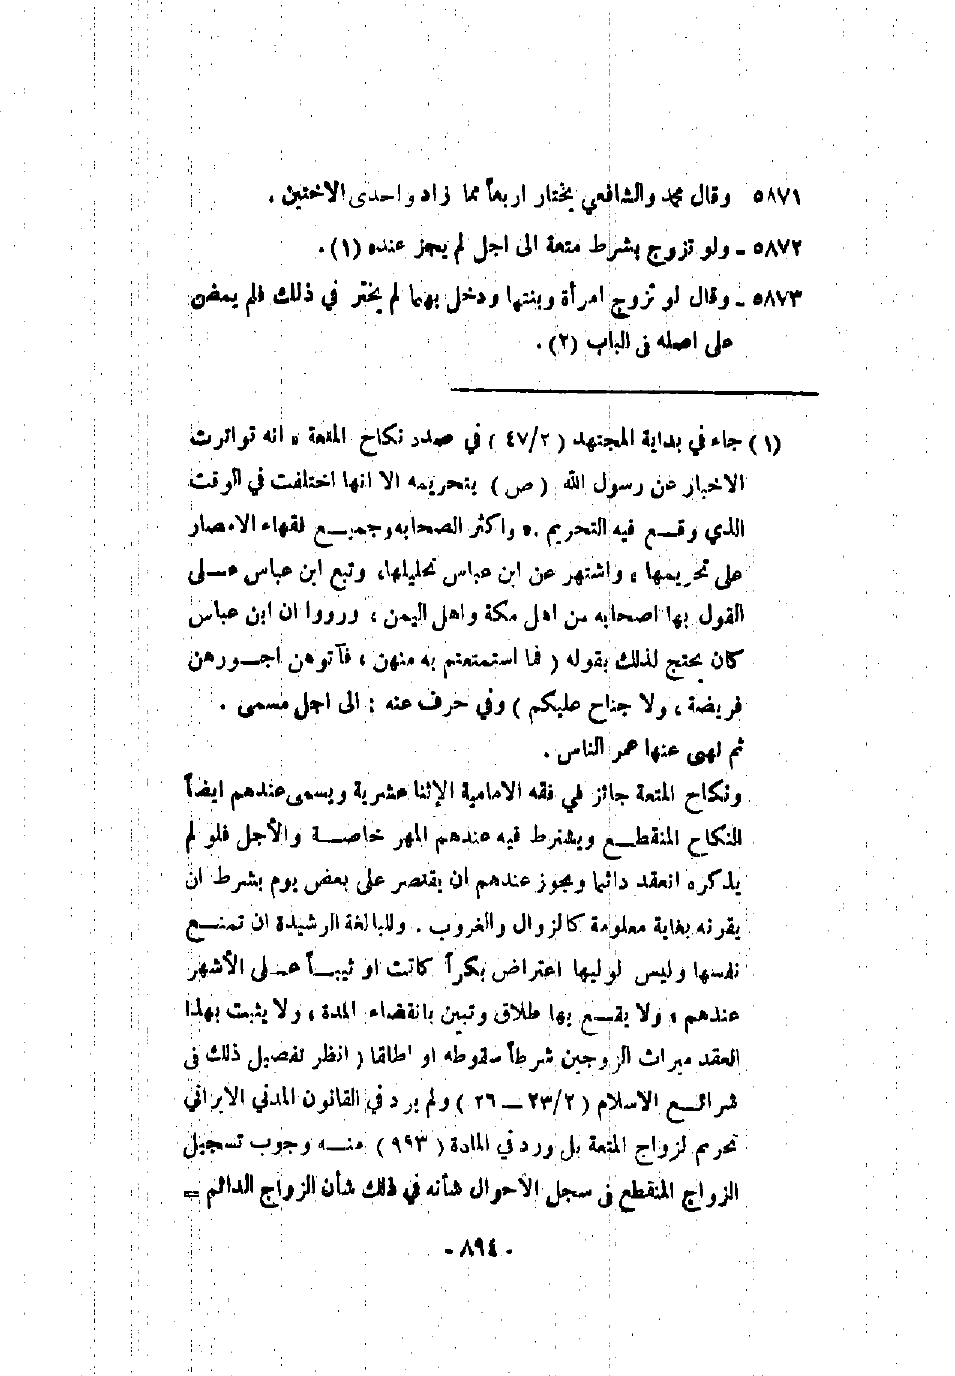 ٥٨٧١ وقال محمد والشافعي يختار اربعاً مما زاد واحدى الاختين .
٥٨٧٢ ـ ولو تزوج بشرط متعة الى اجل لم يجز عنده (١) .
٥٨٧٣ ـ وقال لو تزوج امرأة وبنتها ودخل بهما لم يختر في ذلك فلم يمض
على اصله في الباب (٢) .
(١) جاء في بداية المجتهد ( ٤٧/٢ ) في صدد نكاح المتعة « انه تواترت
الاخبار عن رسول الله ( ص ) بتحريمه الا انها اختلفت في الوقت
الذي وقـــع فيه التحريم .» واكثر الصحابه وجميـــع فقهاء الامصار
على تحريمها ، واشتهر عن ابن عباس تحليلها، وتبع ابن عباس عـــلى
القول بها اصحابه من اهل مكة واهل اليمن ، ورووا ان ابن عباس
كان يحتج لذلك بقوله ( فما استمتعتم به منهن ، فآتوهن اجـــورهن
فريضة ، ولا جناح عليكم ) وفي حرف عنه : الى اجل مسمى .
ثم نهى عنها عمر الناس .
ونكاح المتعة جائز في فقه الامامية الإثنا عشرية ويسمى عندهم ايضاً
النكاح المنقطـــع ويشترط فيه عندهم المهر خاصـــة والأجل فلو لم
يذكره انعقد دائما ويجوز عندهم أن يقتصر على بعض يوم بشرط ان
يقرنه بغاية معلومة كالزوال والغروب . وللبالغة الرشيدة ان تمتـــع
نفسها وليس لوليها اعتراض بكراً كانت او ثيبـــاً عـــلى الأشهر
عندهم ، ولا يقـــع بها طلاق وتبين بانقضاء المدة ، ولا يثبت بهذا
العقد ميراث الزوجين شرطاً سقوطه او اطلقا ( انظر تفصيل ذلك في
شرائـــع الاسلام ( ٢٣/٢ ــ ٢٦ ) ولم يرد في القانون المدني الايراني
تحريم لزواج المتعة بل ورد في المادة ( ٩٩٣ ) منـــه وجوب تسجيل
الزواج المنقطع في سجل الأحوال شأنه في ذلك شأن الزواج الدائم =
- ٨٩٤ -